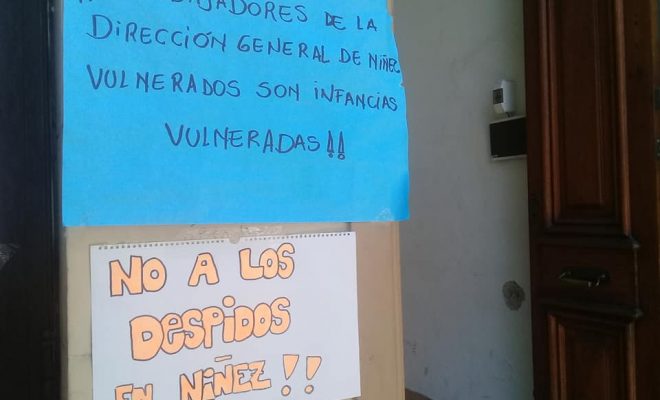 TRABAJADORES DE LA
DIRECCIÓN GENERAL DE NIÑEZ
VULNERADOS SON INFANCIAS
VULNERADAS!!
NO A LOS
DESPIDOS
EN NIÑEZ!!